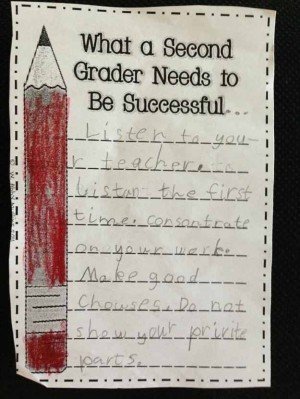 What a Second
Grader Needs to
Be Successful...
Listen to you
r teacher.
Listan the first
time. consantrate
on your werk.
Make good
Chouses. Do not
show your privite
parts.